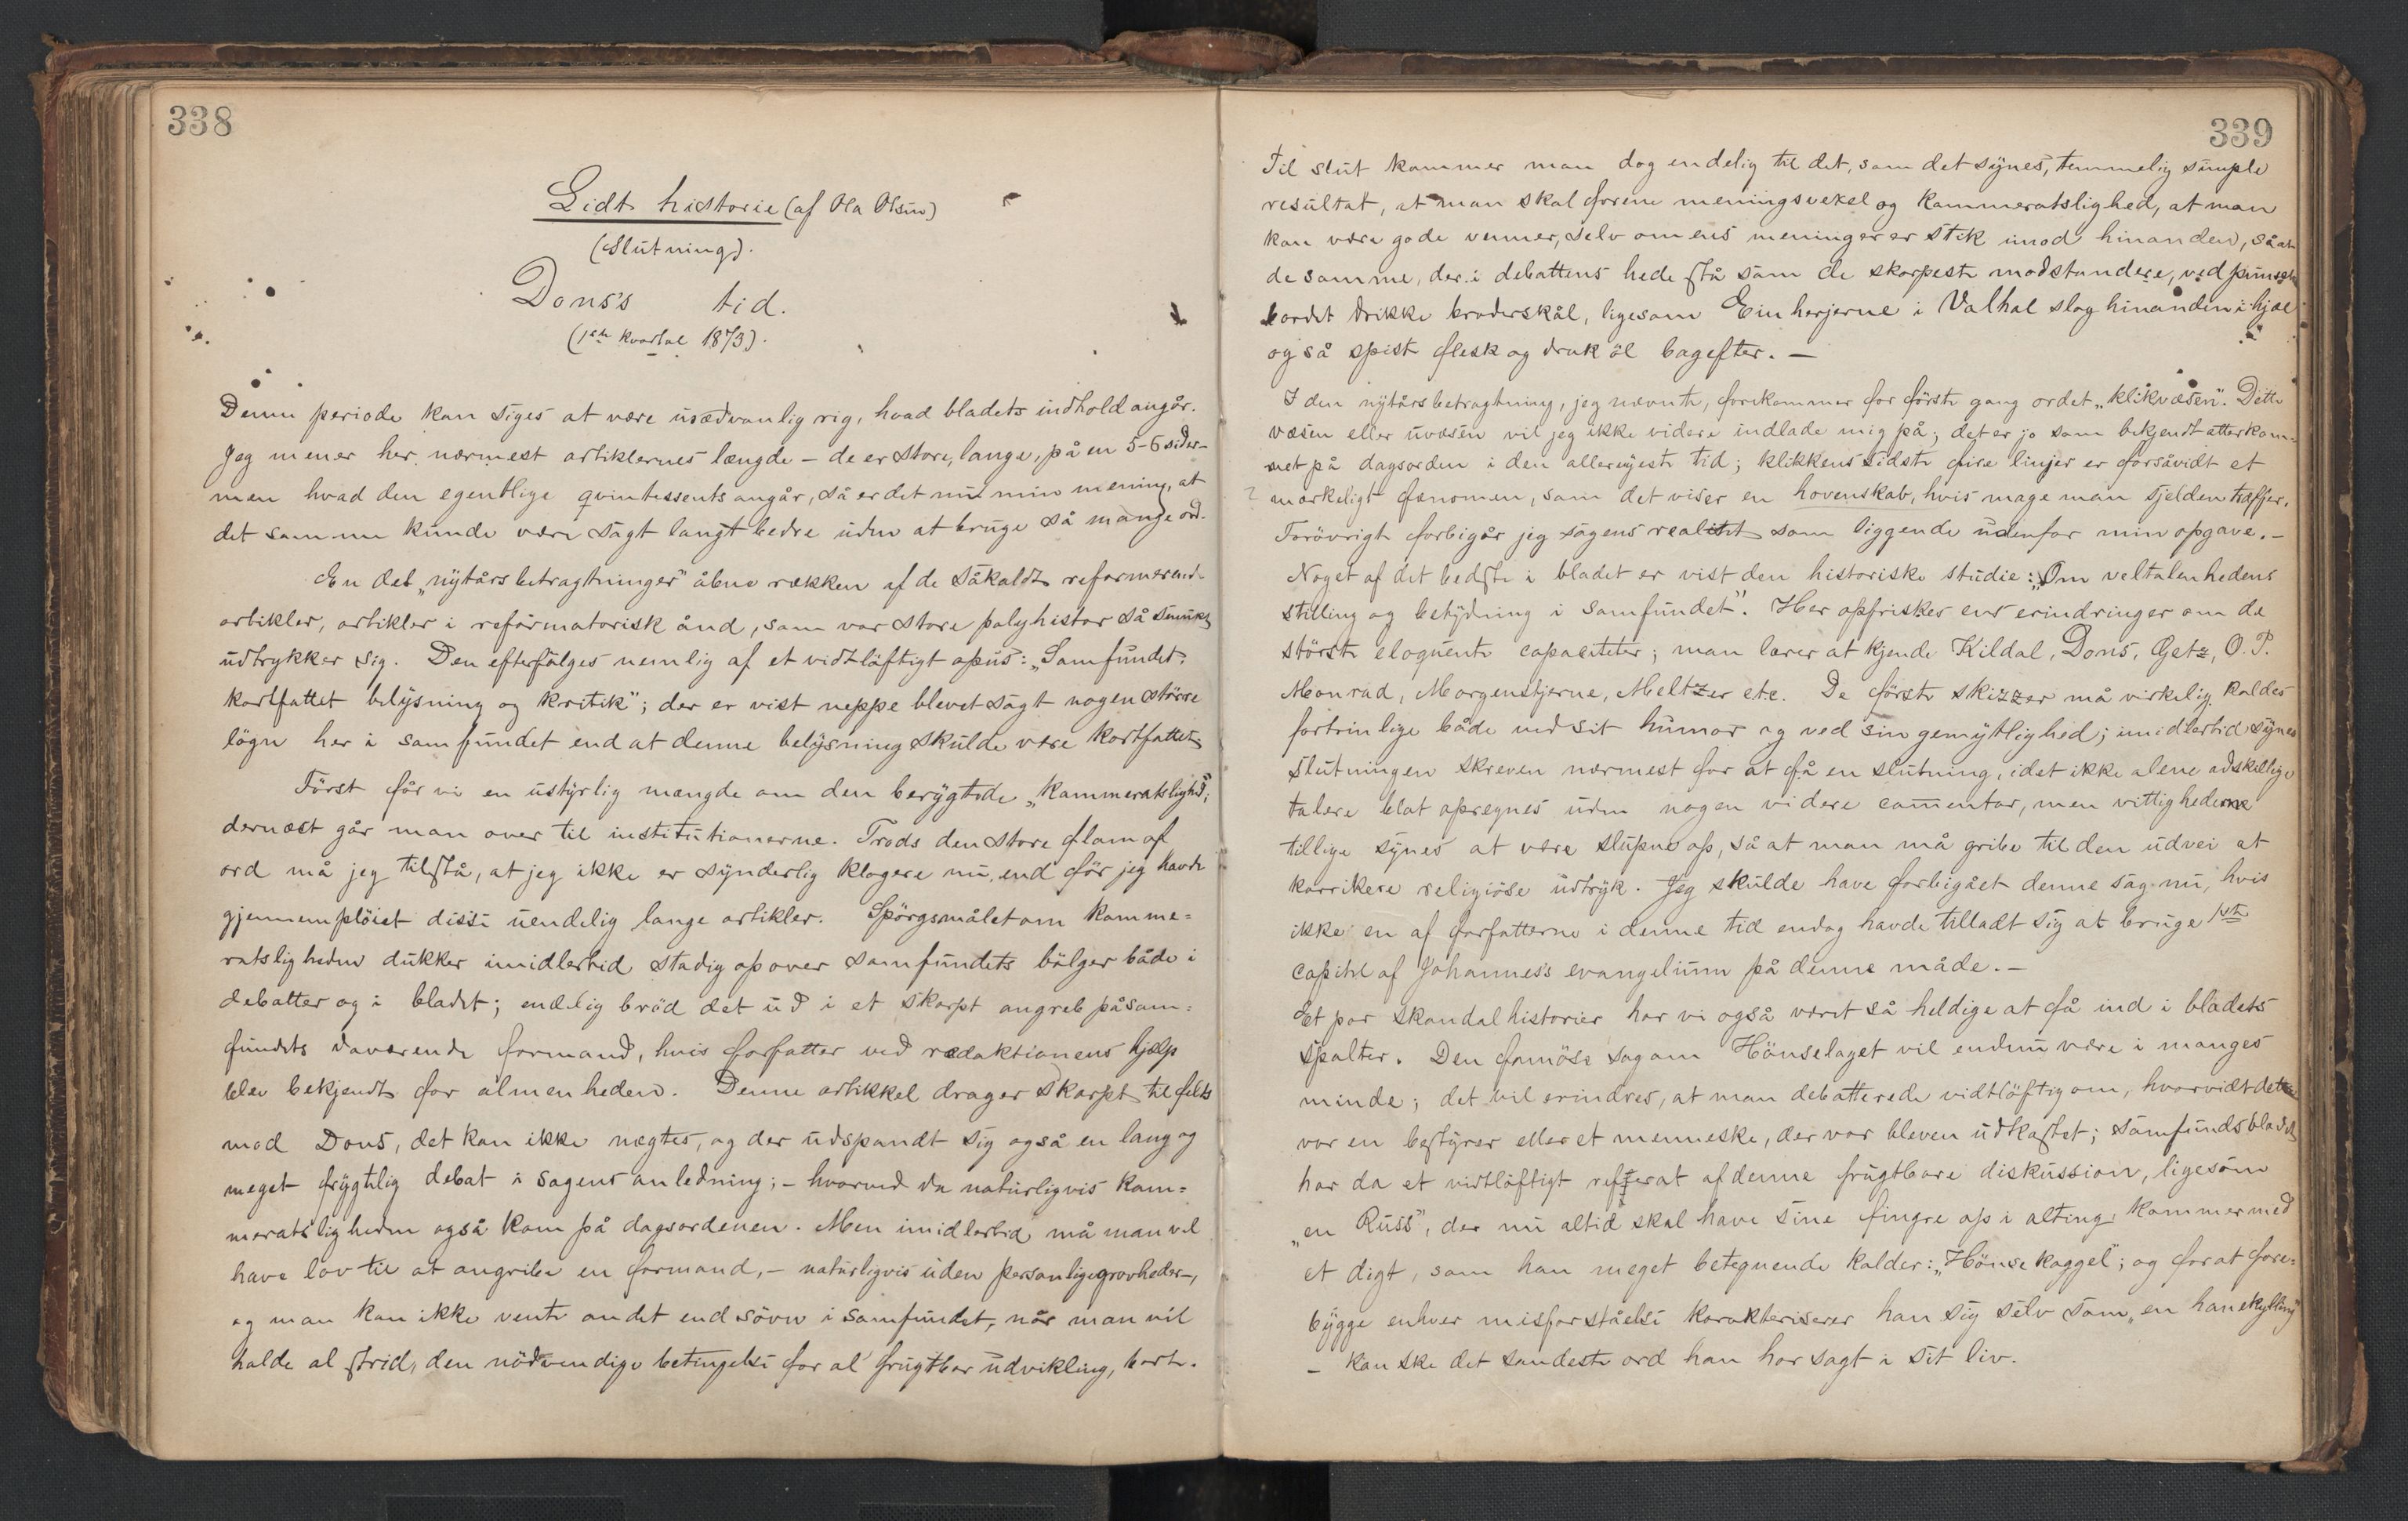 338
Lidt historie (af Ola Olsen)
(Slutning).
Dons's tid.
(1ste kvartal 1873).
Denne periode kan siges at være usædvanlig rig, hvad bladets indhold angår.
Jeg mener her nærmest artiklernes længde – de er store, lange, på en 5-6 sider –
men hvad den egentlige qvintessents angår, så er det nu min mening, at
det samme kunde være sagt langt bedre uden at bruge så mange ord.
En del „nytårsbetragtninger" åbne rækken af de såkaldte reformerend-
artikler, artikler i reformatorisk ånd, som vor store polyhistor så smukt
udtrykker sig. Den efterfølges nemlig af et vidtløftigt opus: „Samfundet,
kortfattet belysning og kritik"; der er vist neppe blevet sagt nogen større
løgn her i samfundet end at denne belysning skulde være kortfattet.
Først får vi en ustyrlig mængde om den berygtede „kammeratslighed",
dernæst går man over til institutionerne. Trods den store flom af
ord må jeg tilstå, at jeg ikke er synderlig klogere nu, end før jeg havde
gjennempløiet disse uendelig lange artikler. Spørgsmålet om kamme=
ratsligheden dukker imidlertid stadig op over samfundets bølger både i
debatter og i bladet; endelig brød det ud i et skarpt angreb på sam=
fundets daværende formand, hvis forfatter ved redaktionens hjælp
blev bekjendt for almenheden. Denne artikkel drager skarpt til felts
mod Dons, det kan ikke nægtes, og der udspandt sig også en lang og
meget frygtelig debat i sagens anledning; – hvorved da naturligvis kam=
meratsligheden også kom på dagsordenen. Men imidlertid må man vel
have lov til at angribe en formand, – naturligvis uden personlige grovheder –,
og man kan ikke vente andet end søvn i samfundet, når man vil
holde al strid, den nødvendige betingelse for al frugtbar udvikling, borte.
339
Til slut kommer man dog endelig til det, som det synes, temmelig simple
resultat, at man skal forene meningsvexel og kammeratslighed, at man
kan være gode venner, selv om ens meninger er stik imod hinanden, så at
de samme, der i debattens hede stå som de skarpeste modstandere, ved punsche
bordet drikke broderskål, ligesom Einherjerne i Valhal slog hinanden ihjæl
og så spiste flesk og drak øl bagefter. –
I den nytårsbetragtning, jeg nævnte, forekommer for første gang ordet „klikvæsen". Dette
væsen eller uvæsen vil jeg ikke videre indlade mig på; det er jo som bekjendt atter kom=
met på dagsorden i den allernyeste tid; klikkens sidste fire linjer er forsåvidt et
? mærkeligt fænomen, som det viser en hovenskab, hvis mage man sjelden træffer.
Forøvrigt forbigår jeg sagens realitet som liggende udenfor min opgave. –
Noget af det bedste i bladet er vist den historiske studie: „Om veltalenhedens
stilling og betydning i samfundet". Her opfriskes ens erindringer om de
største eloquente capaciteter; man lærer at kjende Kildal, Dons, Getz, O. P.
Monrad, Morgenstjerne, Meltzer etc. De første skizzer må virkelig kaldes
fortrinlige både ved sit humor og ved sin gemytlighed; imidlertid synes
slutningen skreven nærmest for at få en slutning, idet ikke alene adskillige
talere blot opregnes uden nogen videre commentar, men vittighederne
tillige synes at være slupne op, så at man må gribe til den udvei at
karrikere religiøse udtryk. Jeg skulde have forbigået denne sag nu, hvis
ikke en af forfatterne i denne tid endog havde tilladt sig at bruge 1ste
capitel af Johannes's evangelium på denne måde. –
Et par skandalhistorier har vi også været så heldige at få ind i bladets
spalter. Den famøse sag om Hønselaget vil endnu være i manges
minde; det vil erindres, at man debatterede vidtløftig om, hvorvidt dette
var en bestyrer eller et menneske, der var bleven udkastet; samfundsbladet
har da et vidtløftigt referat af denne frugtbare diskussion, ligesom
„en Russ", der nu altid skal have sine fingre op i alting, kommer med
et digt, som han meget betegnende kalder: „Hønsekaggel"; og for at fore=
bygge enhver misforståelse karakteriserer han sig selv som „en hanekylling"
– kanske det sandeste ord han har sagt i sit liv.